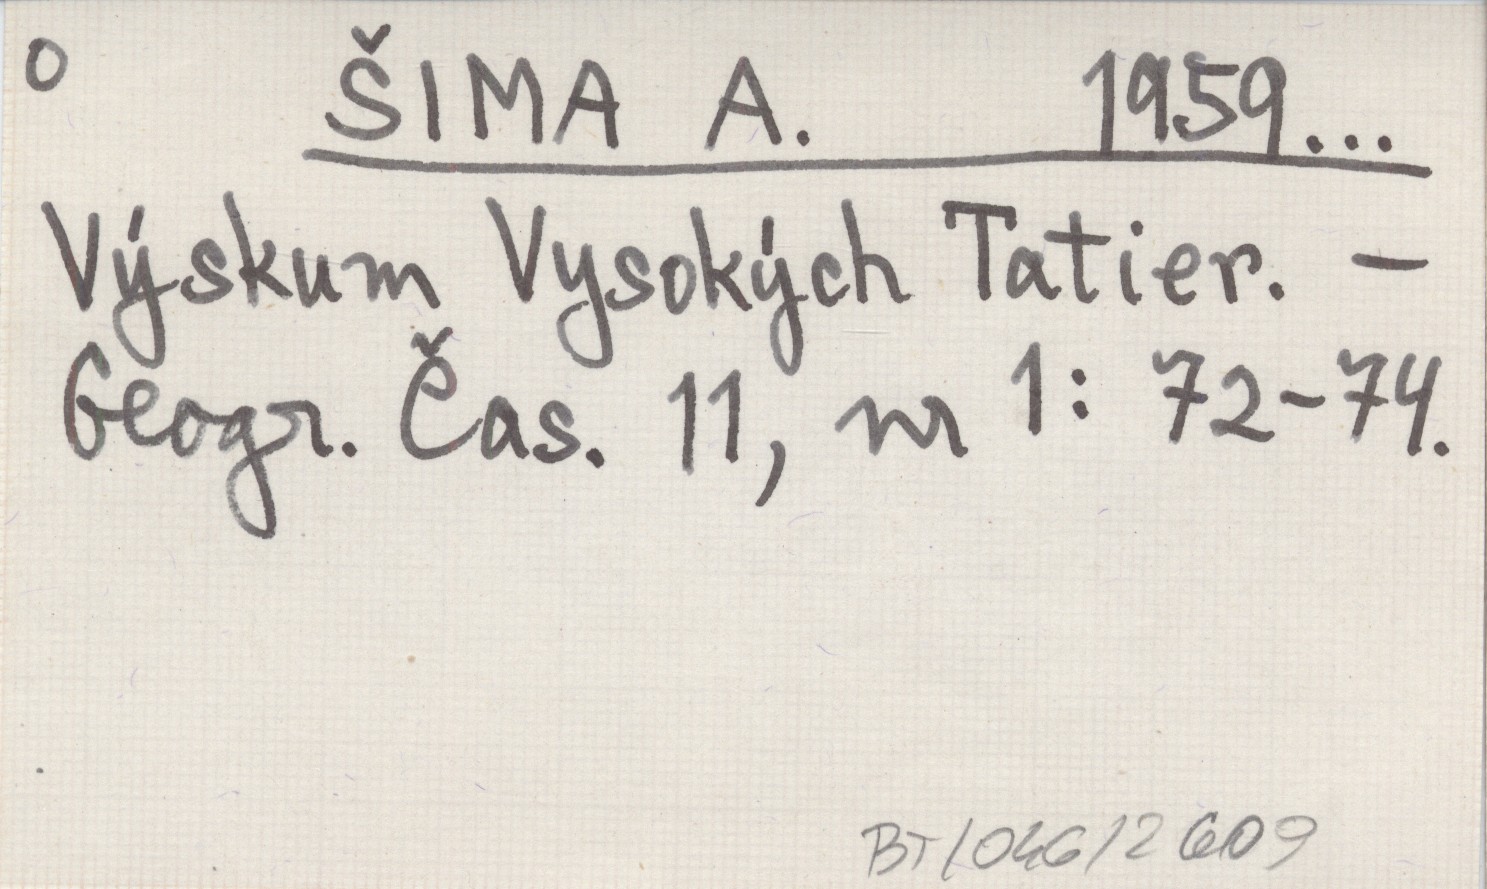 O ŠIMA A. 1959...
Výskum Vysokých Tatier. –
Geogr. Čas. 11, nr 1: 72-74.
BT/046/2609